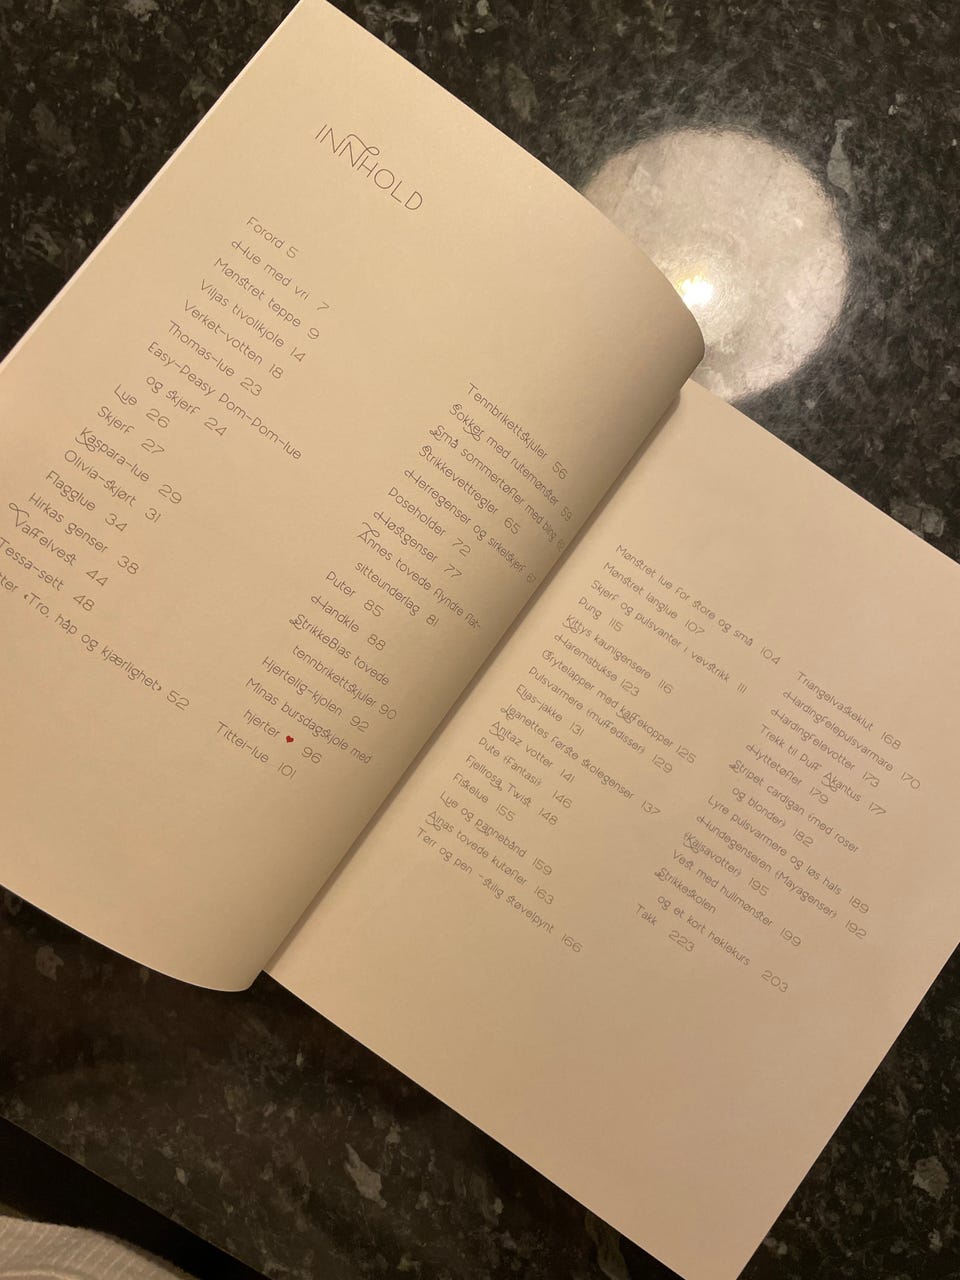 INNHOLD
Forord 5
Hue med vri 7
Mønstret teppe 9
Viljas tivolikjole 14
Verket-votten 18
Thomas-lue 23
Easy-Peasy Pom-Pom-lue
og skjerf 24
Lue 26
Skjerf 27
Kaspara-lue 29
Olivia-skjørt 31
Flagglue 34
Hirkas genser 38
Vaffelvest 44
Tessa-sett 48
«Tro, håp og kjærlighet» 52
Tennbrikettskjuler 56
Sokker med rutemønster 59
Små sommertøfler med bling
Strikkevettregler 65
Herregenser og sirkelskjerf 67
Doseholder 72
Høstgenser 77
Annes tovede flyndre flat-
sitteunderlag 81
Puter 85
Håndkle 88
StrikkeBlas tovede
tennbrikettskjuler 90
Hjertelig-kjolen 92
Minas bursdagskjole med
hjerter ♥ 96
Tittei-lue 101
Mønstret lue for store og små 104
Mønstret langlue 107
Skjerf og pulsvanter i vevstrikk 111
Pung 115
Kittys kaunigensere 116
Haremsbukse 123
Gryteklapper med kaffekopper 125
Pulsvarmere (muffedisser) 129
Elias-jakke 131
Jeanettes første skolegenser 137
Anitaz votter 141
Pute (Fantasi) 146
Fjellrosa Twist 148
Fiskelue 155
Lue og pannebånd 159
Ainas tovede kutøfler 163
Tørr og pen -stilig støvelpynt 166
Triangelvaskeklut 168
Hardingfelepulsvarmere 170
Hardingfelevotter 173
Trekk til puff Akantus 177
Hyttetøfler 179
Stripet cardigan (med roser
og blonder) 182
Lyre pulsvarmere og løs hals 189
Hundegenseren (Mayagenser) 192
(Kajsavotter) 195
Vest med hullmønster 199
Strikkeskolen
og et kort heklekurs 203
Takk 223